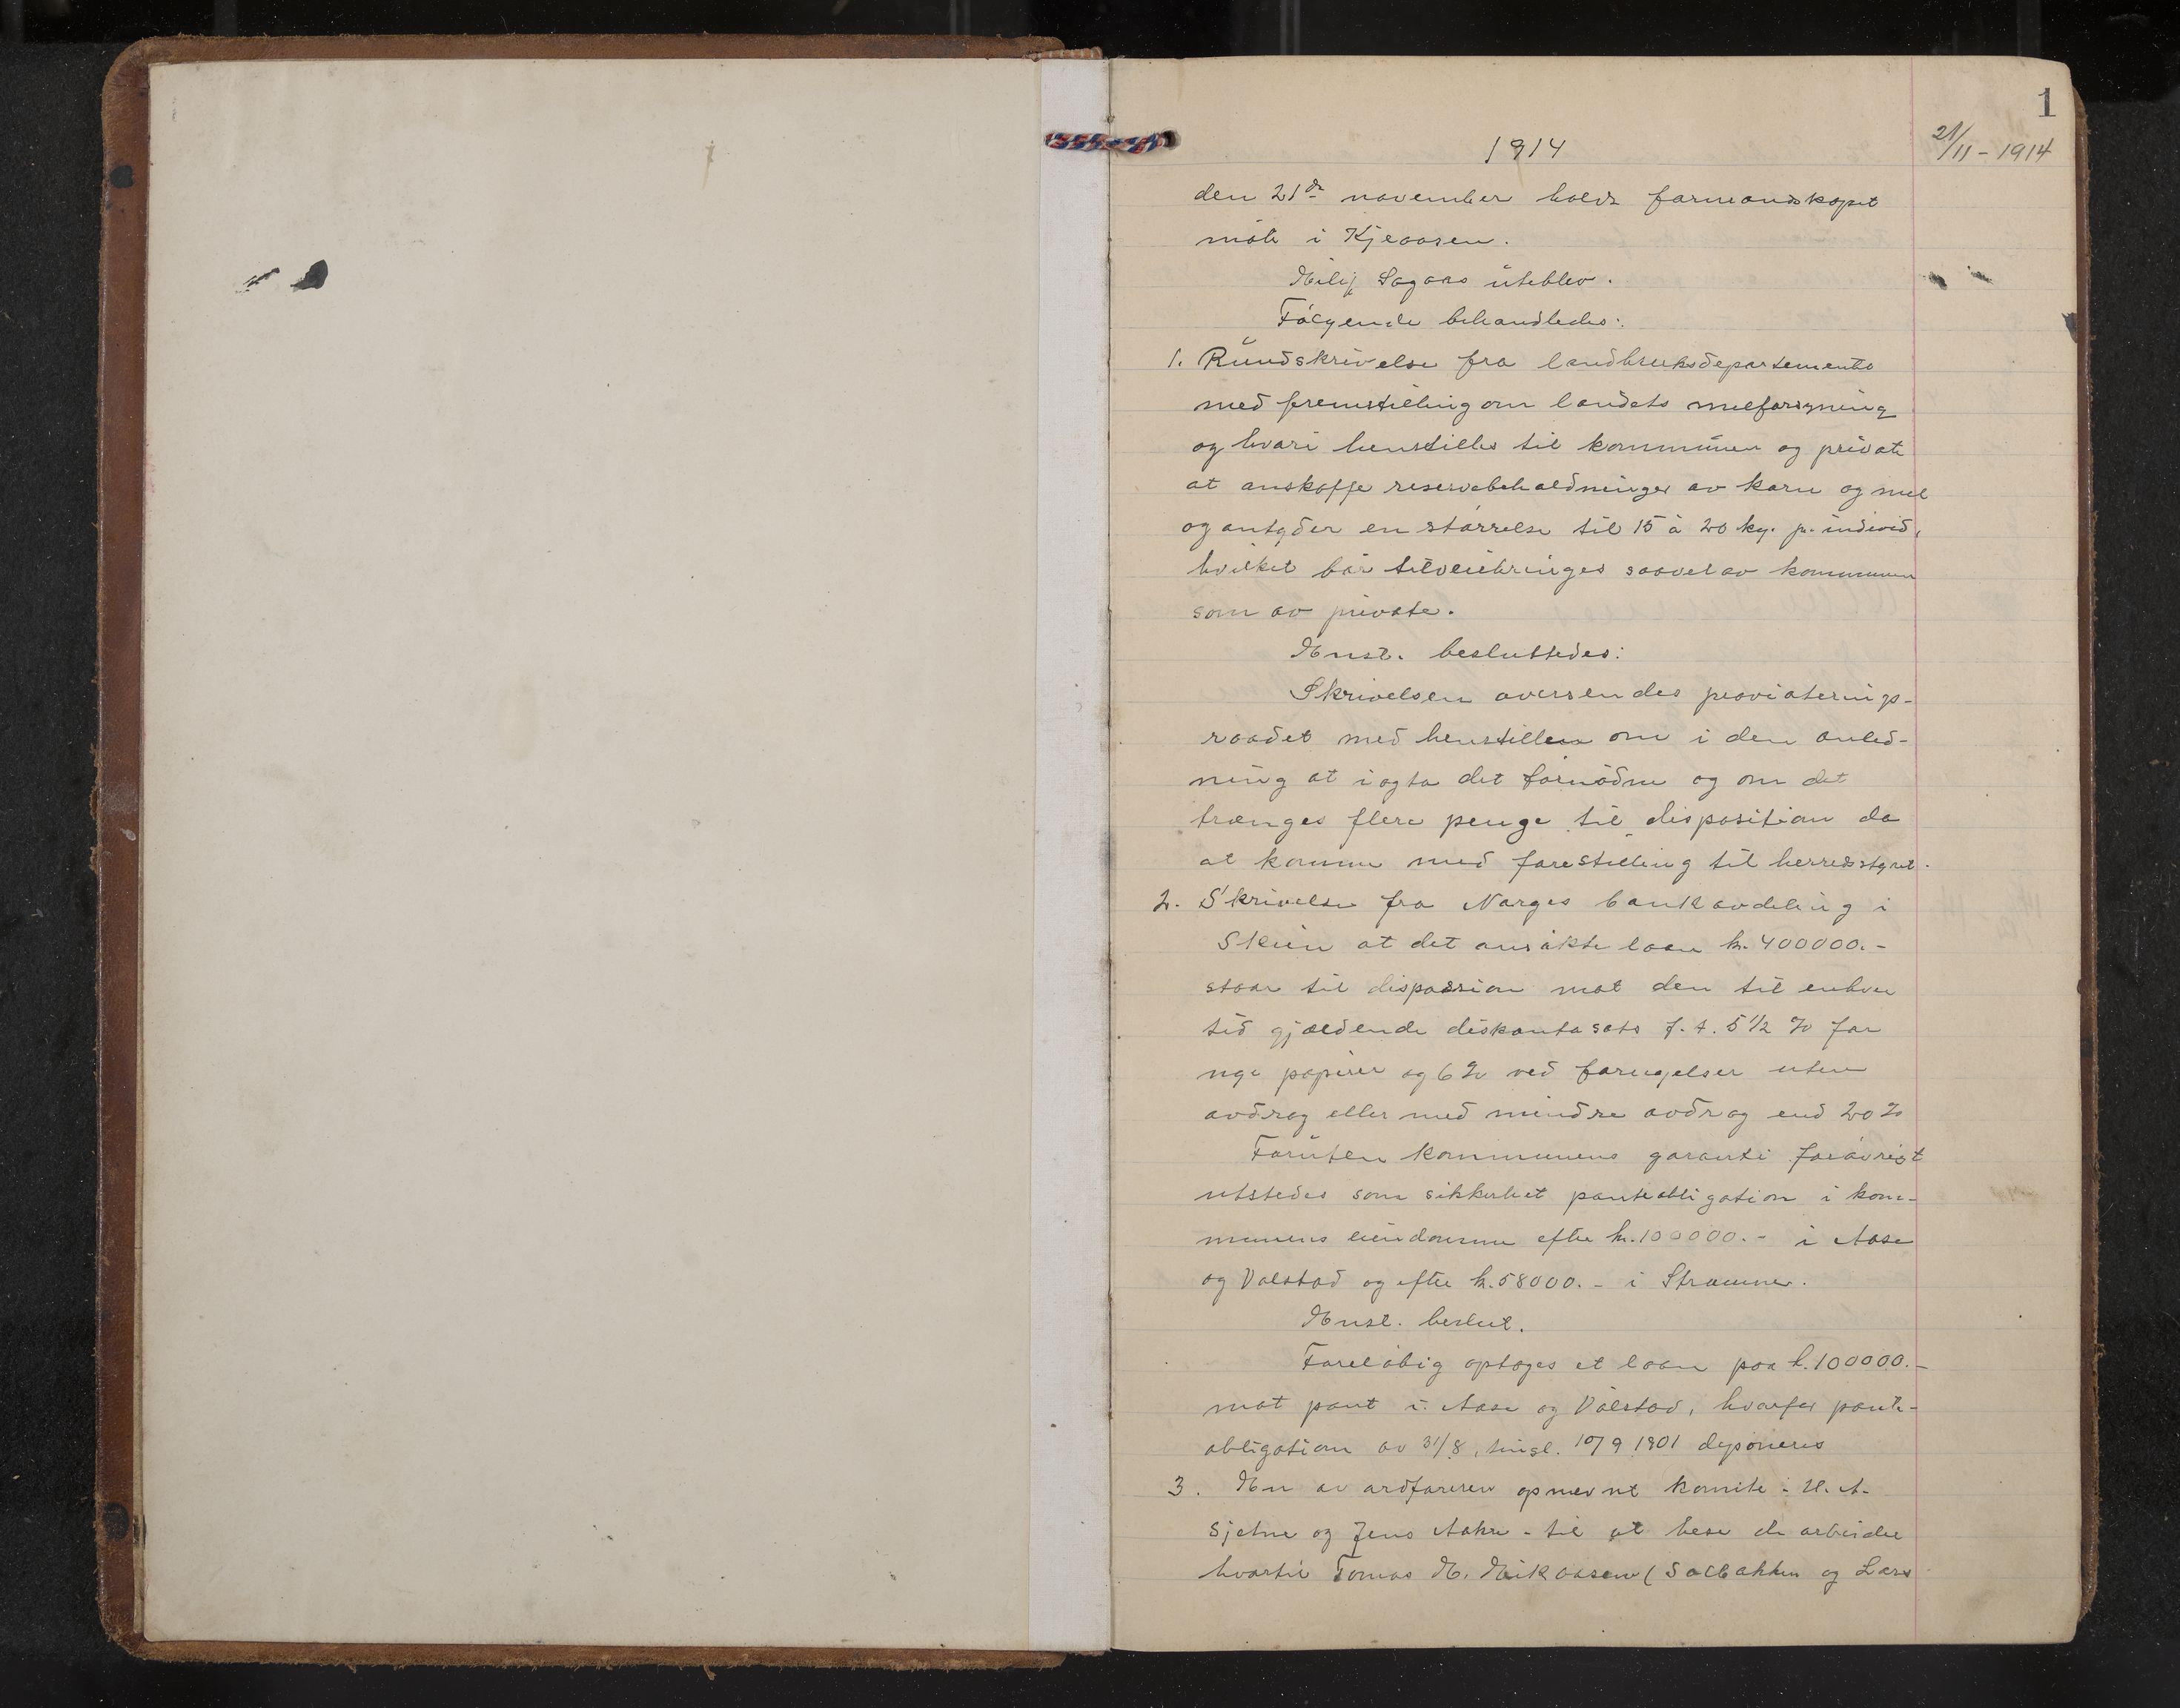 1
21/11 - 1914
1914
den 21de november holdt formandskapet
møte i Kjeaasen.
Eilif Sagaas uteblev.
Følgende behandledes:
1. Rundskrivelse fra landbruksdepartements
med fremstilling om landets melforsyning
og hvori henstilles til kommuner og private
at anskaffe reservebeholdninger av korn og mel
og antyder en størrelse til 15 à 20 kg. pr. individ,
hvilket bør tilveiebringes saavel av kommunen
som av private.
Enst. besluttedes:
Skrivelsen oversendes provianterings-
raadet med henstillen om i den anled-
ning at iagta det fornødne og om det
trænges flere penge til disposition da
at komme med forestilling til herredsstyret.
2. Skrivelse fra Norges bank avdeling i
Skien at det ansøkte laan kr. 400000.-
staar til dispossion mot den til enhver
tid gjældende diskontosats f. t. 5 1/2 % for
nye papirer og 6 % ved fornyelser uten
avdrag eller med mindre avdrag end 20 %
Foruten kommunens garanti forøvrigt
utstedes som sikkerhet panteobligation i kom-
munens eiendomme efter kr. 100000.- i Aase
og Valstad og efter kr. 58000.- i Strømme.
Enst. beslut.
Foreløbig optages et laan paa kr. 100000.-
mot pant i Aase og Valstad, hvorfor pante-
obligation av 31/8, tingl. 10/9 1901 deponeres
3. En av ordføreren opnævnt komite - H. A.
Sjetne og Jens Aakre - til at bese de arbeider
hvortil Tomas E. Eikaasen (Solbakken og Lars